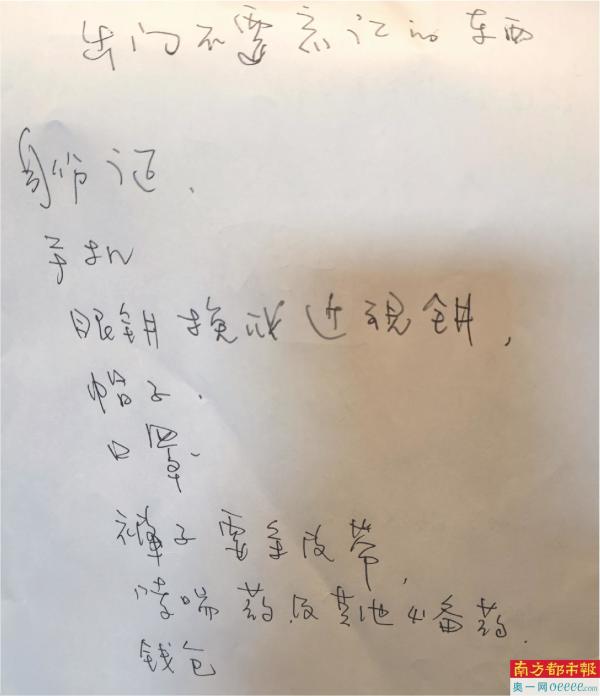 出门不要忘记的东西
身份证.
手机
眼镜换成近视镜,
帽子.
口罩.
裤子要系皮带,
哮喘药及其他必备药.
钱包
南方都市报
奥一网oeeee.com